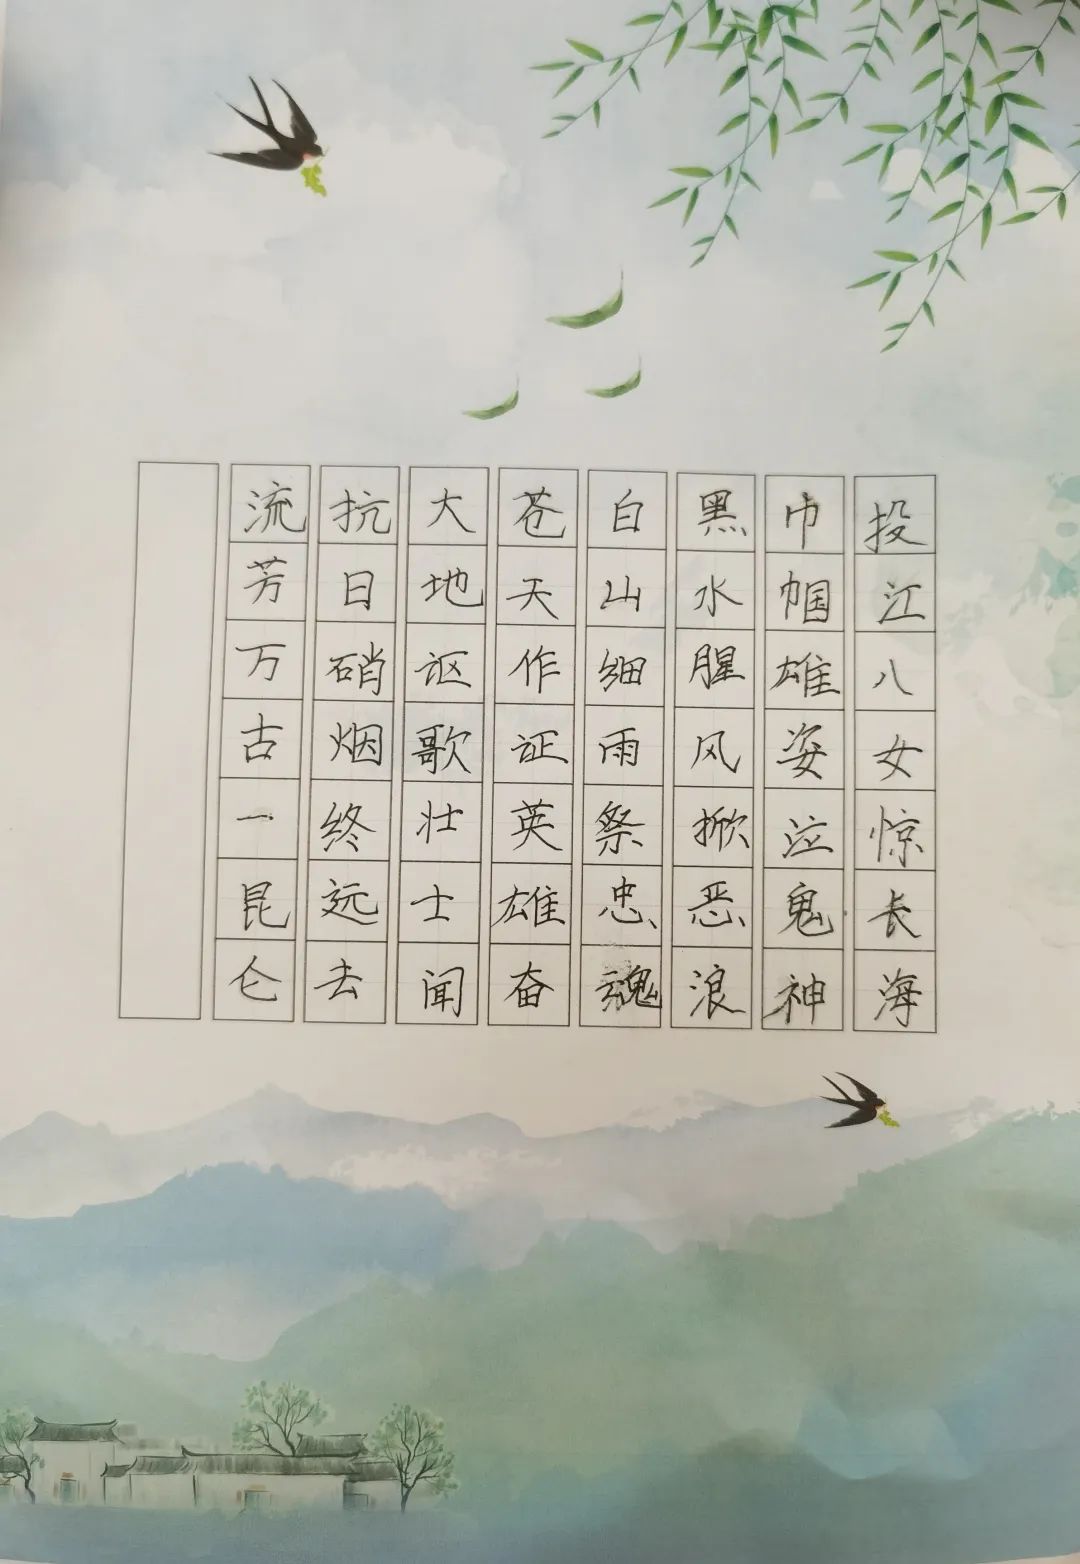 投江八女惊长海
巾帼雄姿泣鬼神
黑水腥风掀恶浪
白山细雨祭忠魂
苍天作证英雄奋
大地讴歌壮士闻
抗日硝烟终远去
流芳万古一昆仑